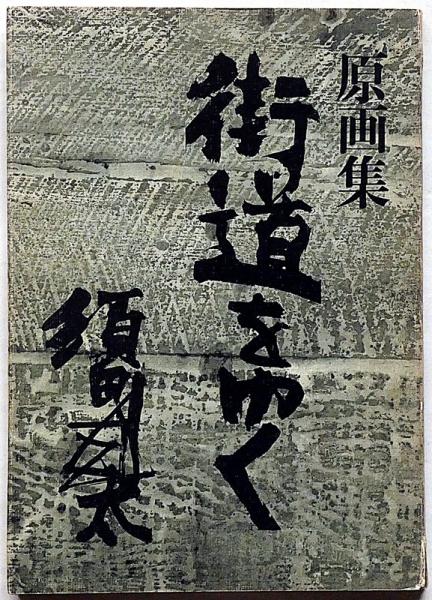 原画集
街道をゆく
須田剋太